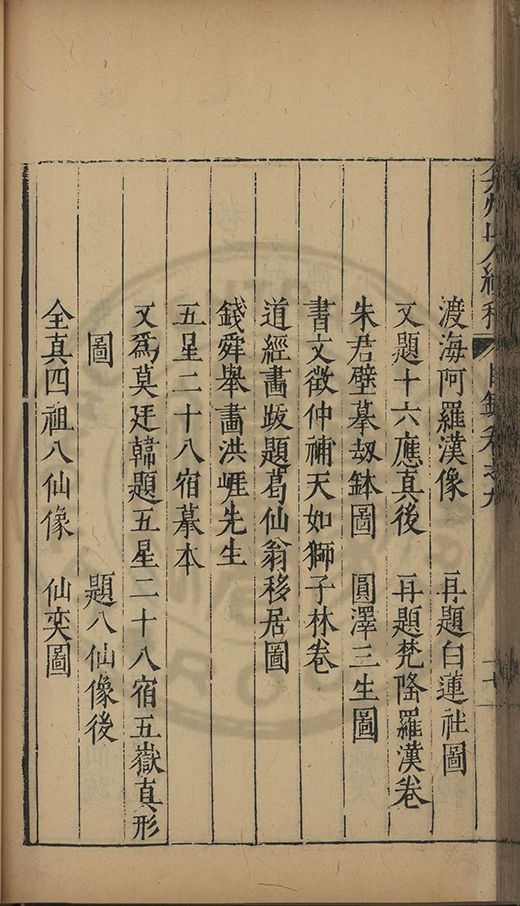 弇州山人續稿 目錄卷之九
渡海阿羅漢像 再題白蓮社圖
又題十六應真後 再題梵隆羅漢卷
朱君璧摹劫鉢圖 圓澤三生圖
書文徵仲補天如獅子林卷
道經畫跋題葛仙翁移居圖
錢舜舉畫洪崕先生
五星二十八宿摹本
又爲莫廷韓題五星二十八宿五嶽真形
圖 題八仙像後
全真四祖八仙像 仙奕圖